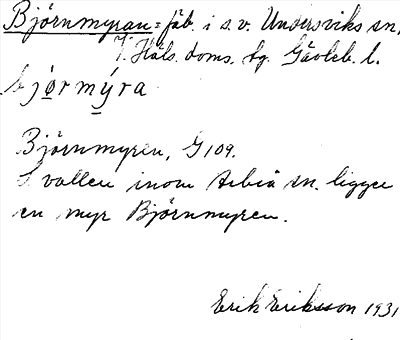 Björnmyran = fäb. i s.v. Undersviks sn,
V. Häls. doms. tg. Gävleb. l.
bjørmýra
Björnmyren, G 109.
I vallen inom Arbrå sn. ligger
en myr Björnmyren.
Erik Eriksson 1931